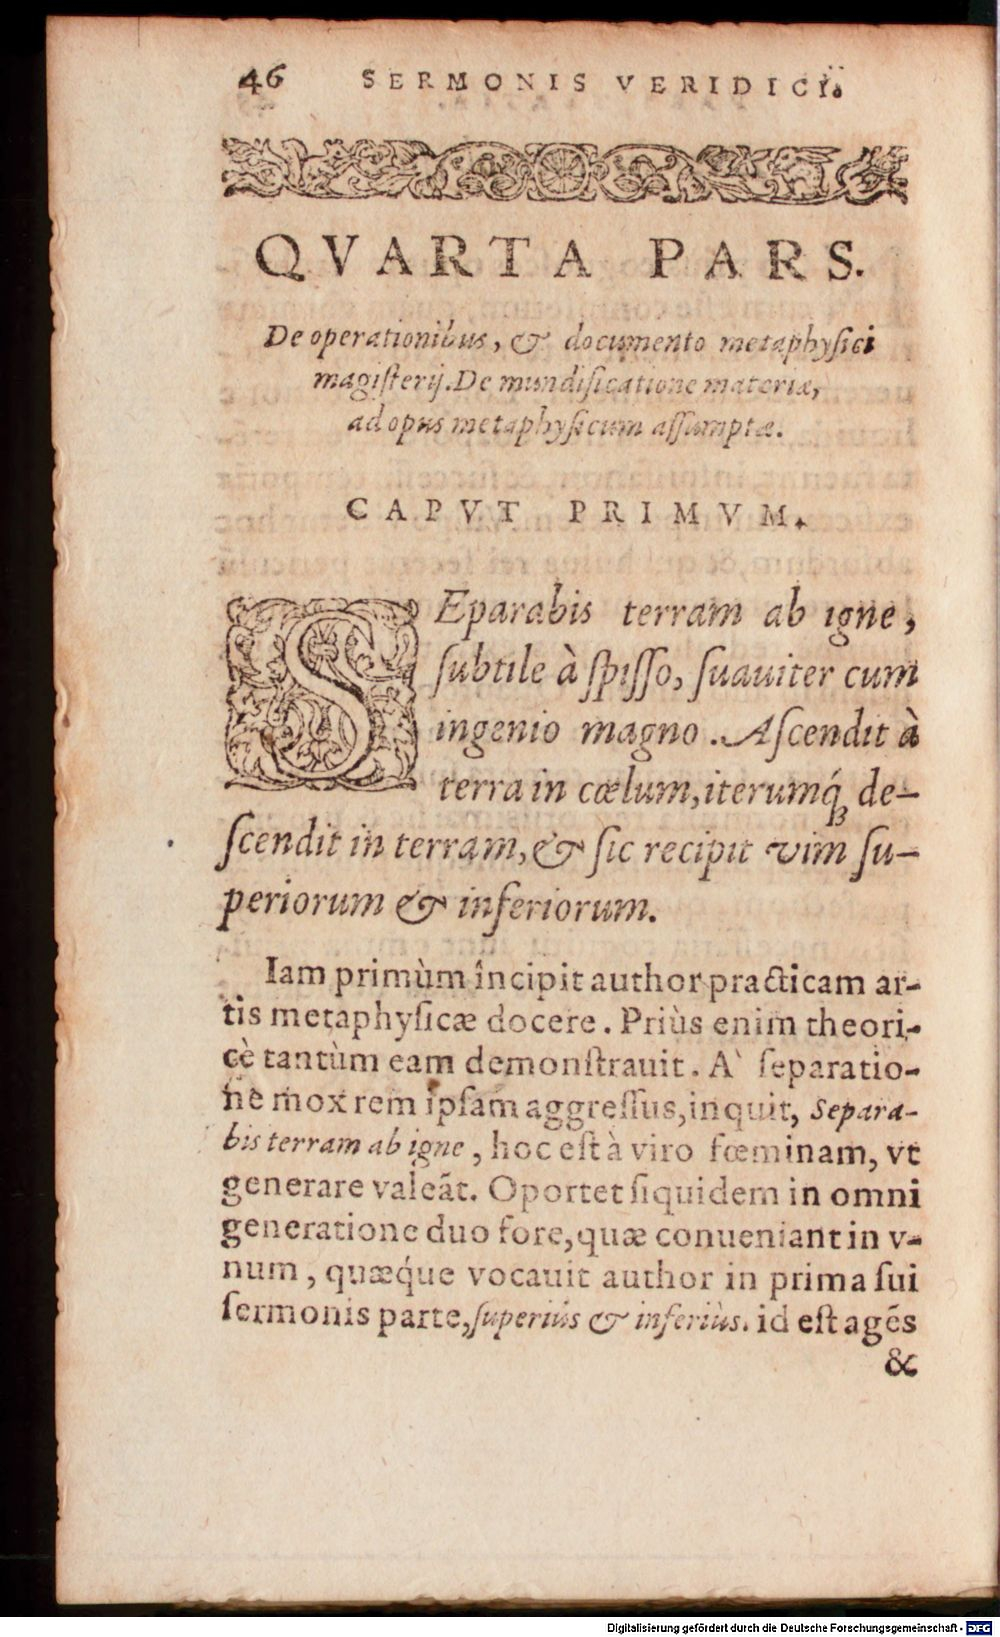 46 SERMONIS VERIDICI.
QVARTA PARS.
De operationibus, & documento metaphyſici
magiſterij. De mundificatione materiæ,
ad opus metaphyſicum aſſumptæ.
CAPVT PRIMVM.
SEparabis terram ab igne,
ſubtile à ſpiſſo, ſuauiter cum
ingenio magno. Aſcendit à
terra in cœlum, iterumq́ꝫ de-
ſcendit in terram, & ſic recipit vim ſu-
periorum & inferiorum.
Iam primùm incipit author practicam ar-
tis metaphyſicæ docere. Priùs enim theori-
cè tantùm eam demonſtrauit. A` ſeparatio-
ne mox rem ipſam aggreſſus, inquit, Separa-
bis terram ab igne, hoc eſt à viro fœminam, vt
generare valeãt. Oportet ſiquidem in omni
generatione duo fore, quæ conueniant in v-
num, quæq́ue vocauit author in prima ſui
ſermonis parte, ſuperiùs & inferiùs. id eſt agẽs
&
Digitalisierung gefördert durch die Deutsche Forschungsgemeinschaft - DFG